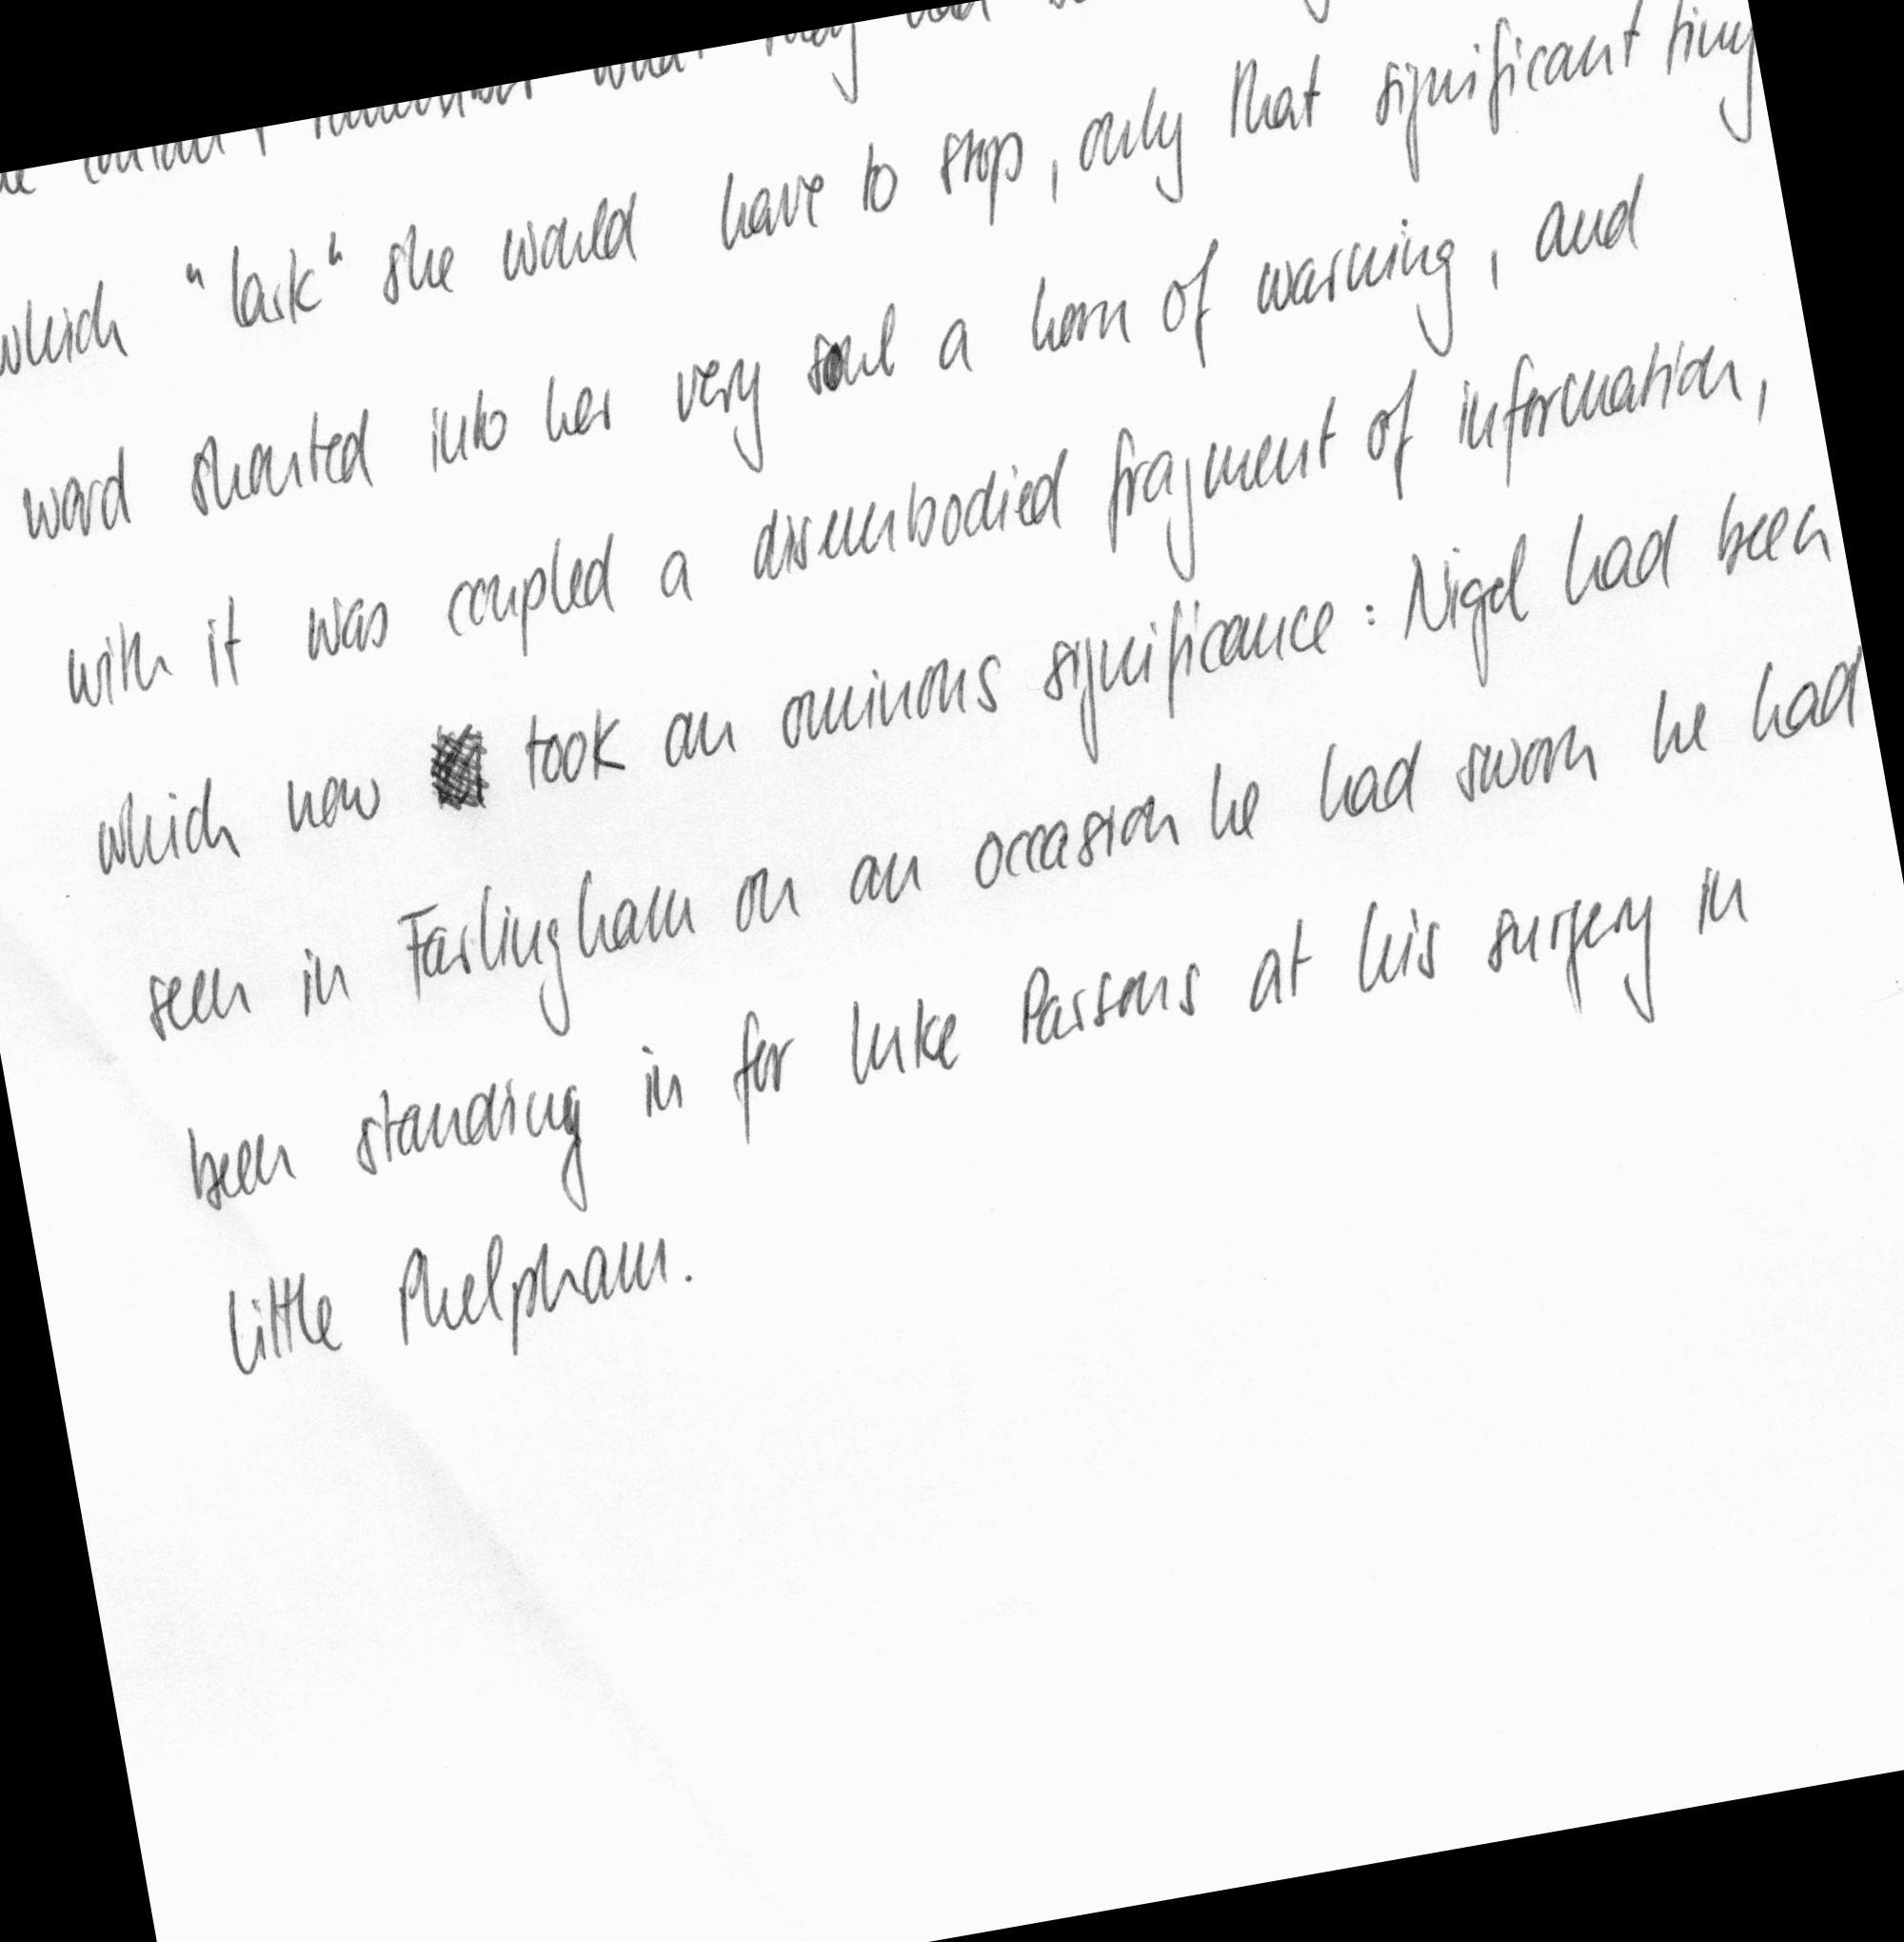 which "lark" she would have to stop, only that significant tiny
word shouted into her very soul a horn of warning, and
with it was coupled a disembodied fragment of information,
which now took an ominous significance: Nigel had been
seen in Farlingham on an occasion he had sworn he had
been standing in for Luke Parsons at his surgery in
Little Phelpham.